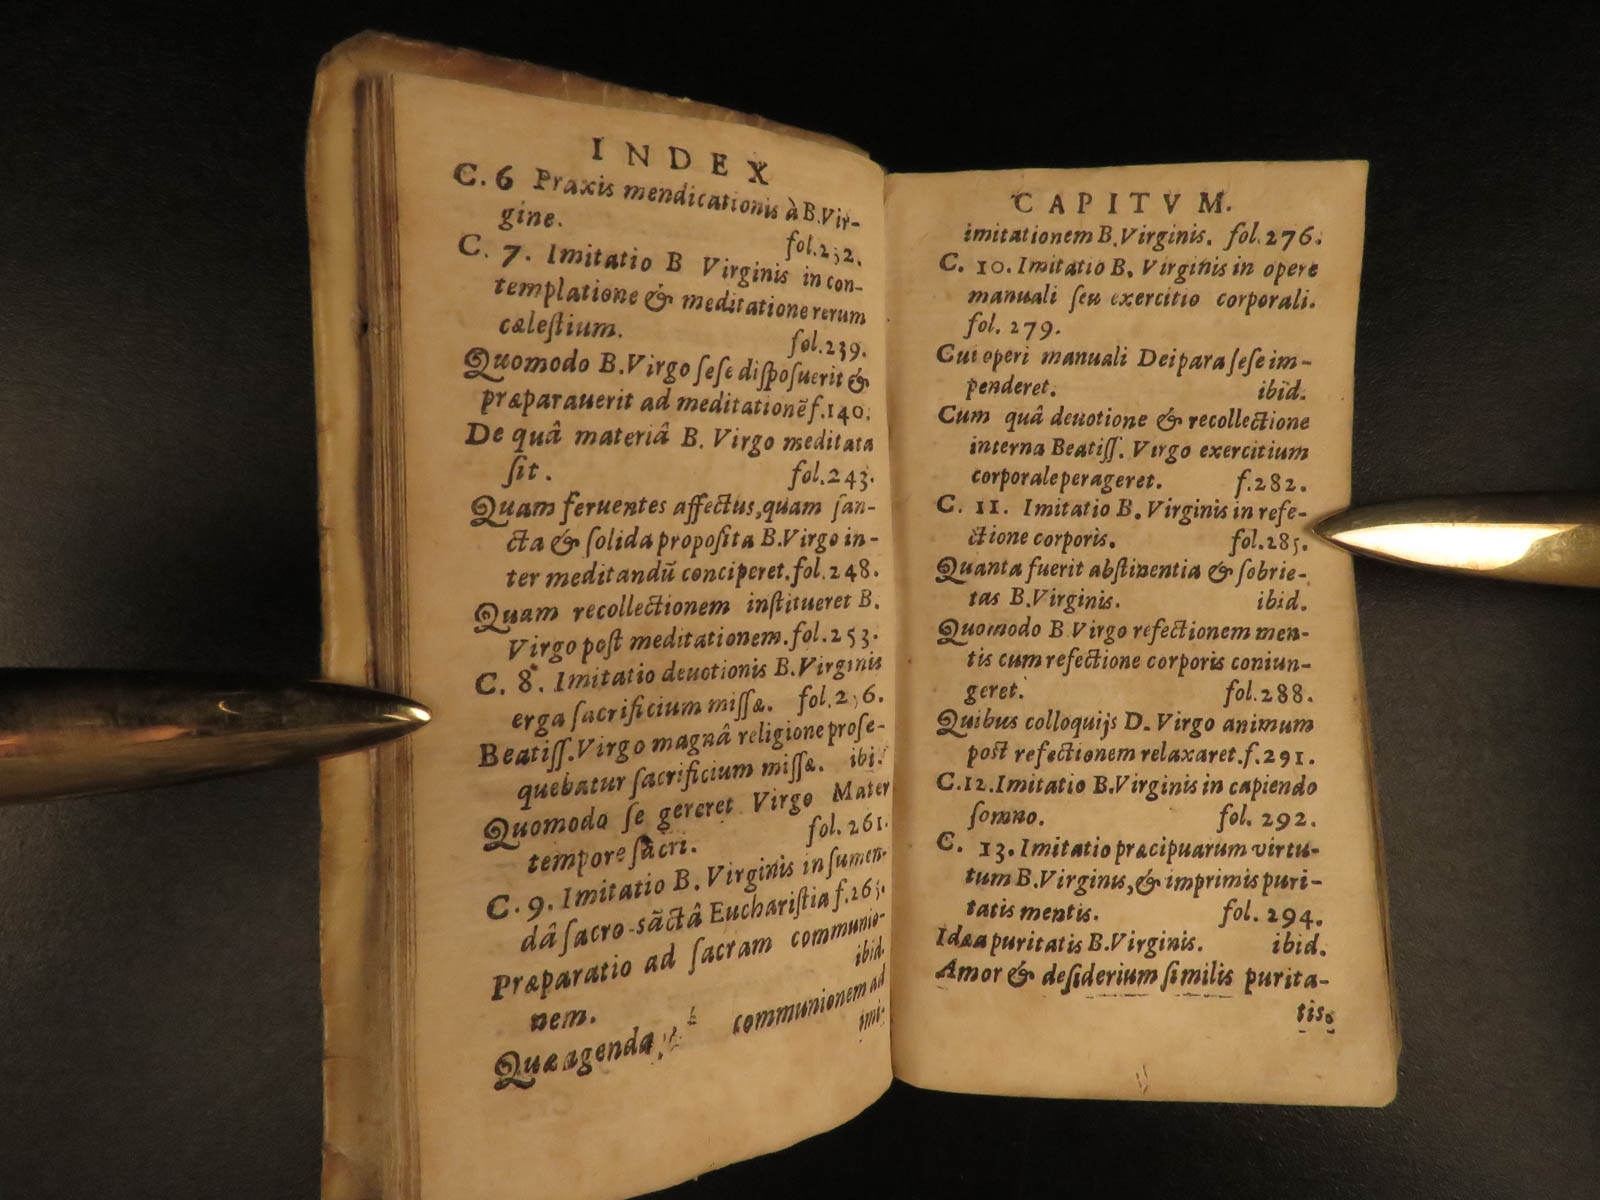 INDEX
C. 6 Praxis mendicationis à B. Vir-
gine. fol. 232.
C. 7. Imitatio B Virginis in con-
templatione & meditatione rerum
cælestium. fol. 239.
Quomodo B. Virgo sese disposuerit &
præparauerit ad meditationẽ f. 140.
De quâ materiâ B. Virgo meditata
sit. fol. 243.
Quam feruentes affectus, quam san-
cta & solida proposita B. Virgo in-
ter meditandũ conciperet. fol. 248.
Quam recollectionem institueret B.
Virgo post meditationem. fol. 253.
C. 8. Imitatio deuotionis B. Virginis
erga sacrificium missæ. fol. 256.
Beatiss. Virgo magnâ religione prose-
quebatur sacrificium missæ. ibi.
Quomodo se gereret Virgo Mater
tempore sacri. fol. 261.
C. 9. Imitatio B. Virginis in sumen-
dâ sacro-sãctâ Eucharistia f. 265.
Præparatio ad sacram communio-
nem. ibid.
Quæ agenda communionem ad
imi-
CAPITVM.
imitationem B. Virginis. fol. 276.
C. 10. Imitatio B. Virginis in opere
manuali seu exercitio corporali.
fol. 279.
Cui operi manuali Deipara sese im-
penderet. ibid.
Cum quâ deuotione & recollectione
interna Beatiss. Virgo exercitium
corporale perageret. f. 282.
C. 11. Imitatio B. Virginis in refe-
ctione corporis. fol. 285.
Quanta fuerit abstinentia & sobrie-
tas B. Virginis. ibid.
Quomodo B Virgo refectionem men-
tis cum refectione corporis coniun-
geret. fol. 288.
Quibus colloquijs D. Virgo animum
post refectionem relaxaret. f. 291.
C. 12. Imitatio B. Virginis in capiendo
somno. fol. 292.
C. 13. Imitatio præcipuarum virtu-
tum B. Virginis, & imprimis puri-
tatis mentis. fol. 294.
Idæa puritatis B. Virginis. ibid.
Amor & desiderium similis purita-
tis.